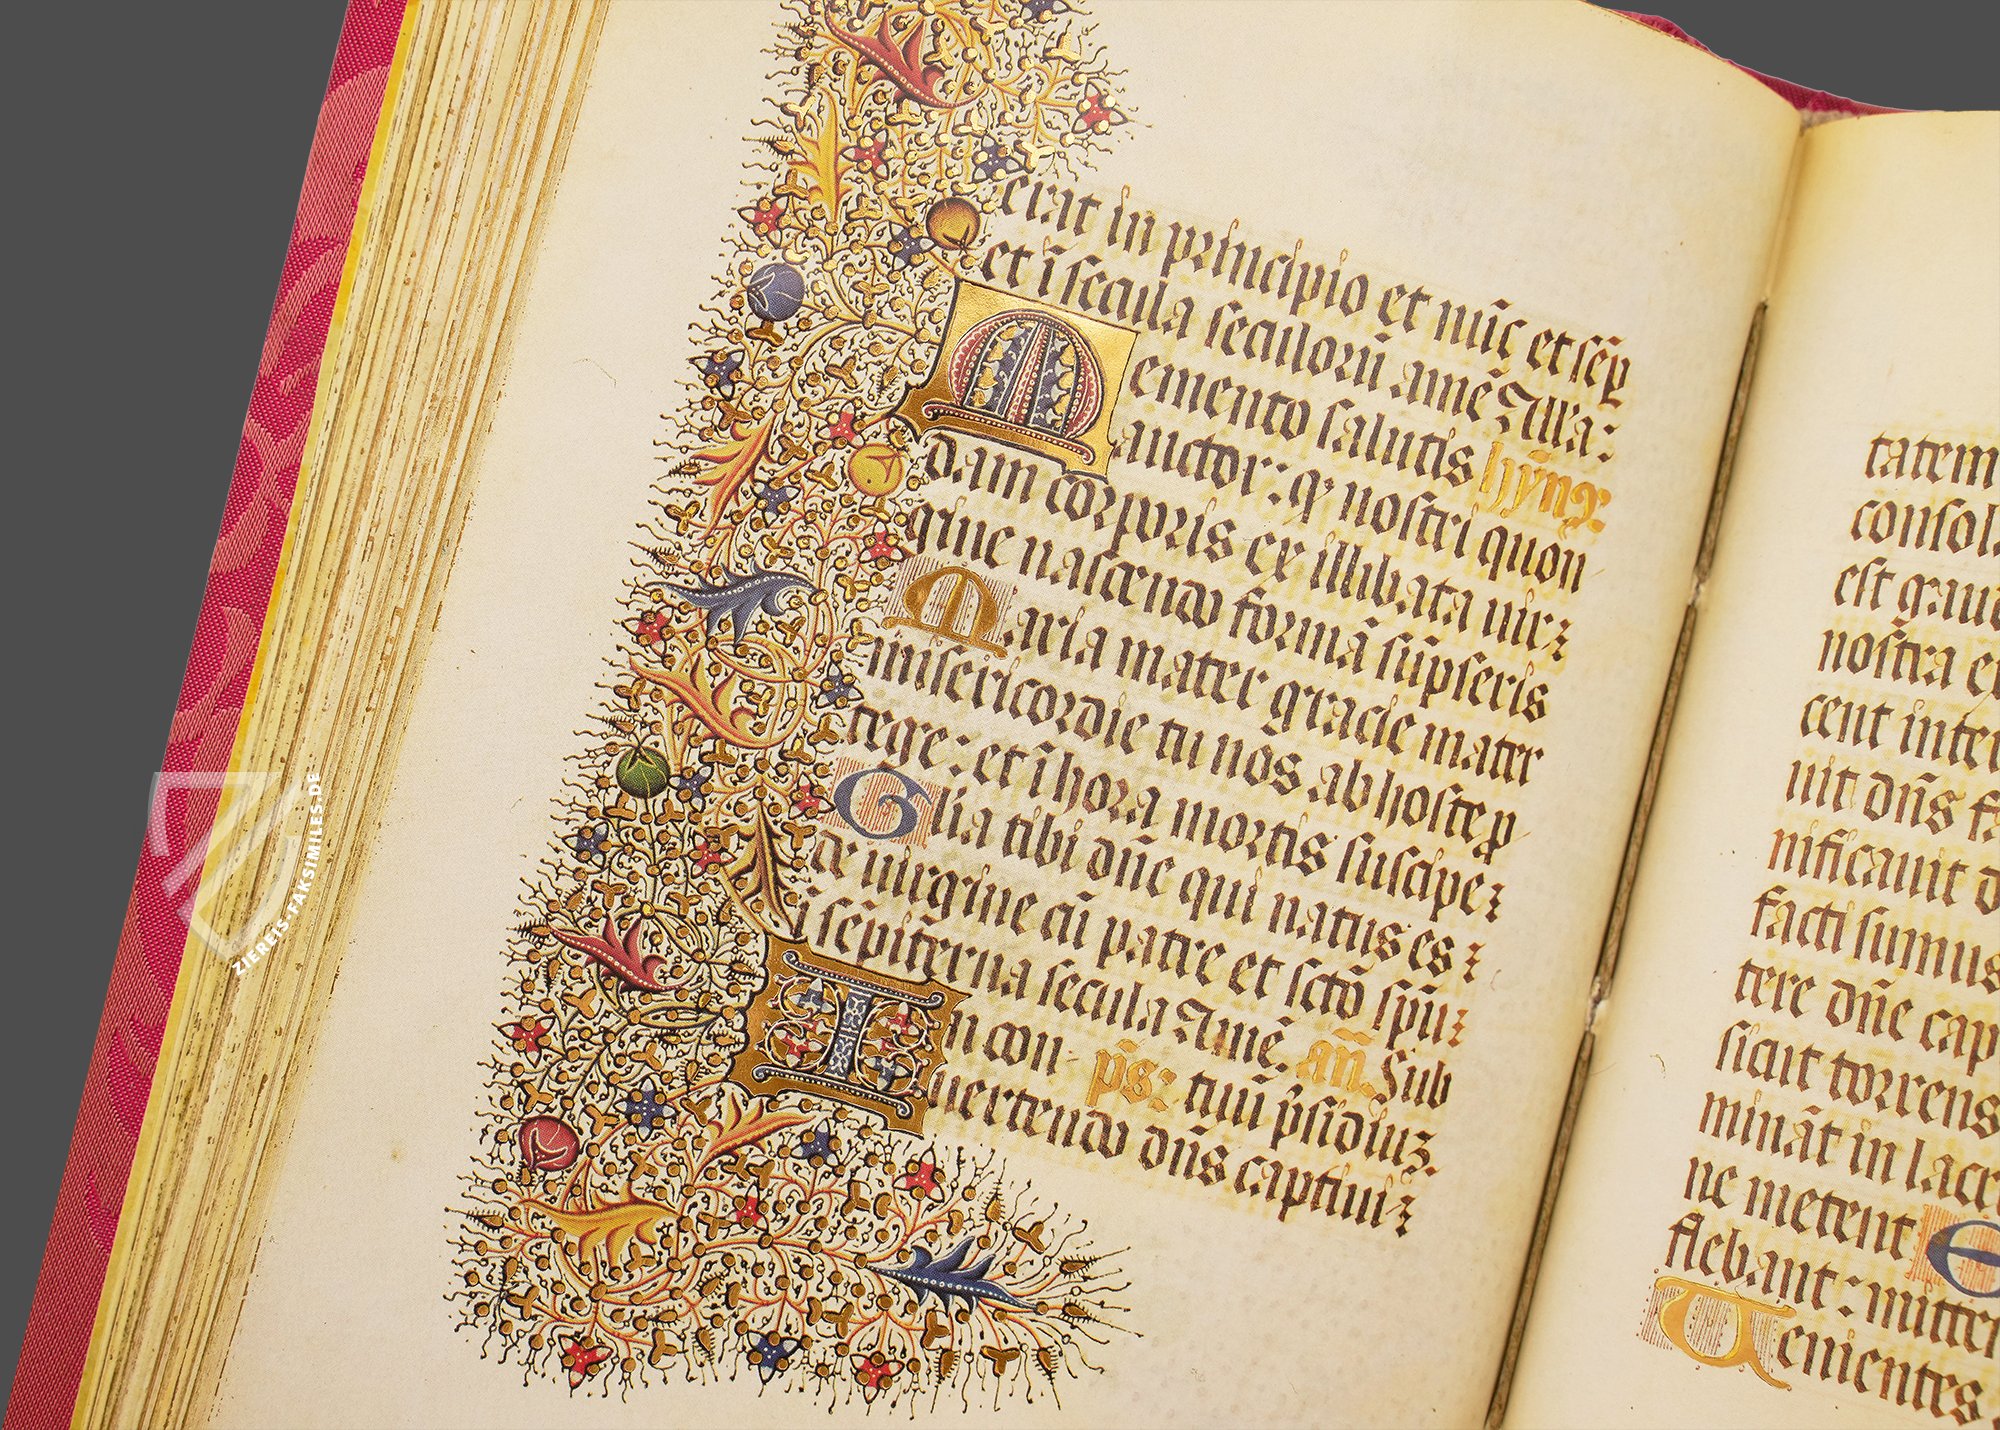 erat in principio et nūc et sēp
et ī secula seculorū amē Alla:
Memento salutis hÿnꝰ
auctor: ꝙ nostri quon
dam corporis ex illibata uir:
gine nascendo formā sūpseris
Maria mater gracie mater
misericordie tu nos ab hoste ꝓ
tege: et ī hora mortis suscipe:
Glīa tibi dn̄e qui natus es:
de uirgine cū patre et scto sp̄u:
ī sēpiterna secula Amē. an̄. Sub
In con- ps: tuū p̄sidiuꝫ.
uertendo dn̄s captiui:
tatem
consola
est gaud
nostra e
cent inter
uit dn̄s fa
nificauit d
facti sumus
tere dn̄e cap
sicut torrens
mināt in lacr
ne metent E
flebant: mitte
Uenientes
ZIEREIS-FAKSIMILES.DE